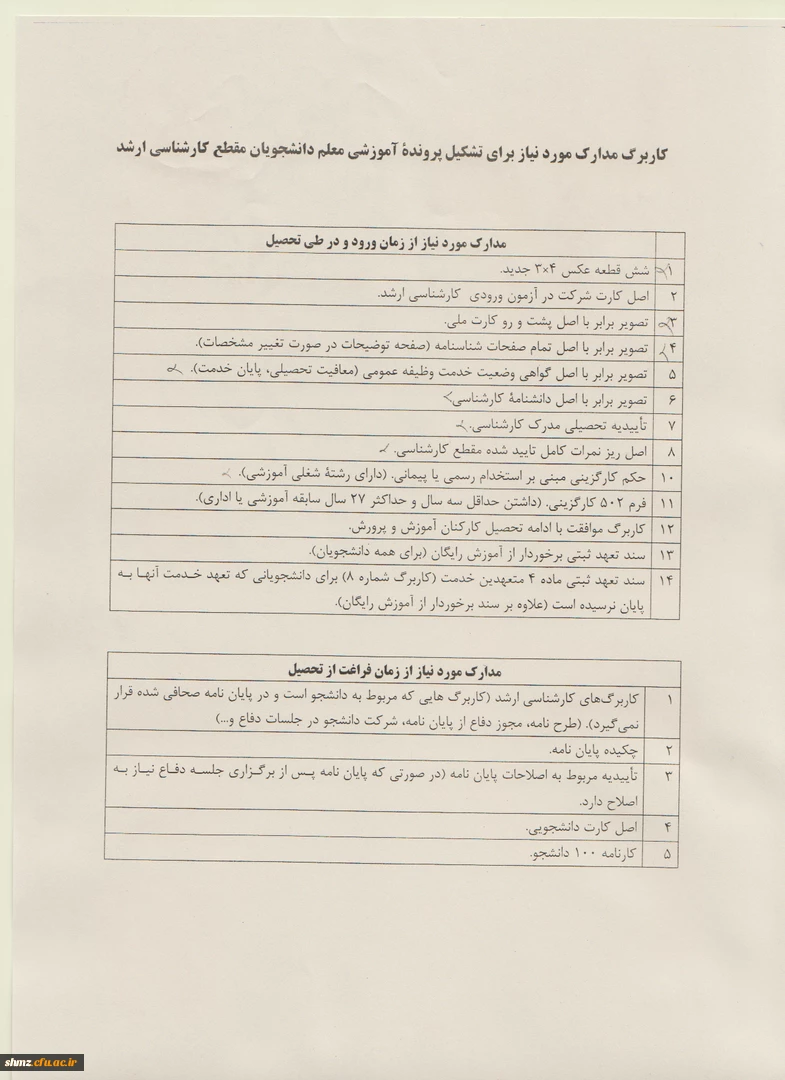 کاربرگ مدارک مورد نیاز برای تشکیل پروندهٔ آموزشی معلم دانشجویان مقطع کارشناسی ارشد
مدارک مورد نیاز از زمان ورود و در طی تحصیل
۱ شش قطعه عکس ۴×۳ جدید.
۲ اصل کارت شرکت در آزمون ورودی کارشناسی ارشد.
۳ تصویر برابر با اصل پشت و رو کارت ملی.
۴ تصویر برابر با اصل تمام صفحات شناسنامه (صفحه توضیحات در صورت تغییر مشخصات).
۵ تصویر برابر با اصل گواهی وضعیت خدمت وظیفه عمومی (معافیت تحصیلی، پایان خدمت).
۶ تصویر برابر با اصل دانشنامهٔ کارشناسی.
۷ تأییدیه تحصیلی مدرک کارشناسی.
۸ اصل ریز نمرات کامل تایید شده مقطع کارشناسی.
۱۰ حکم کارگزینی مبنی بر استخدام رسمی یا پیمانی. (دارای رشتهٔ شغلی آموزشی).
۱۱ فرم ۵۰۲ کارگزینی. (داشتن حداقل سه سال و حداکثر ۲۷ سال سابقه آموزشی یا اداری).
۱۲ کاربرگ موافقت با ادامه تحصیل کارکنان آموزش و پرورش.
۱۳ سند تعهد ثبتی برخوردار از آموزش رایگان (برای همه دانشجویان).
۱۴ سند تعهد ثبتی ماده ۴ متعهدین خدمت (کاربرگ شماره ۸) برای دانشجویانی که تعهد خدمت آنها به
پایان نرسیده است (علاوه بر سند برخوردار از آموزش رایگان).
مدارک مورد نیاز از زمان فراغت از تحصیل
۱ کاربرگ‌های کارشناسی ارشد (کاربرگ هایی که مربوط به دانشجو است و در پایان نامه صحافی شده قرار
نمی‌گیرد). (طرح نامه، مجوز دفاع از پایان نامه، شرکت دانشجو در جلسات دفاع و...)
۲ چکیده پایان نامه.
۳ تأییدیه مربوط به اصلاحات پایان نامه (در صورتی که پایان نامه پس از برگزاری جلسه دفاع نیاز به
اصلاح دارد.
۴ اصل کارت دانشجویی.
۵ کارنامه ۱۰۰ دانشجو.
shmz.cfu.ac.ir